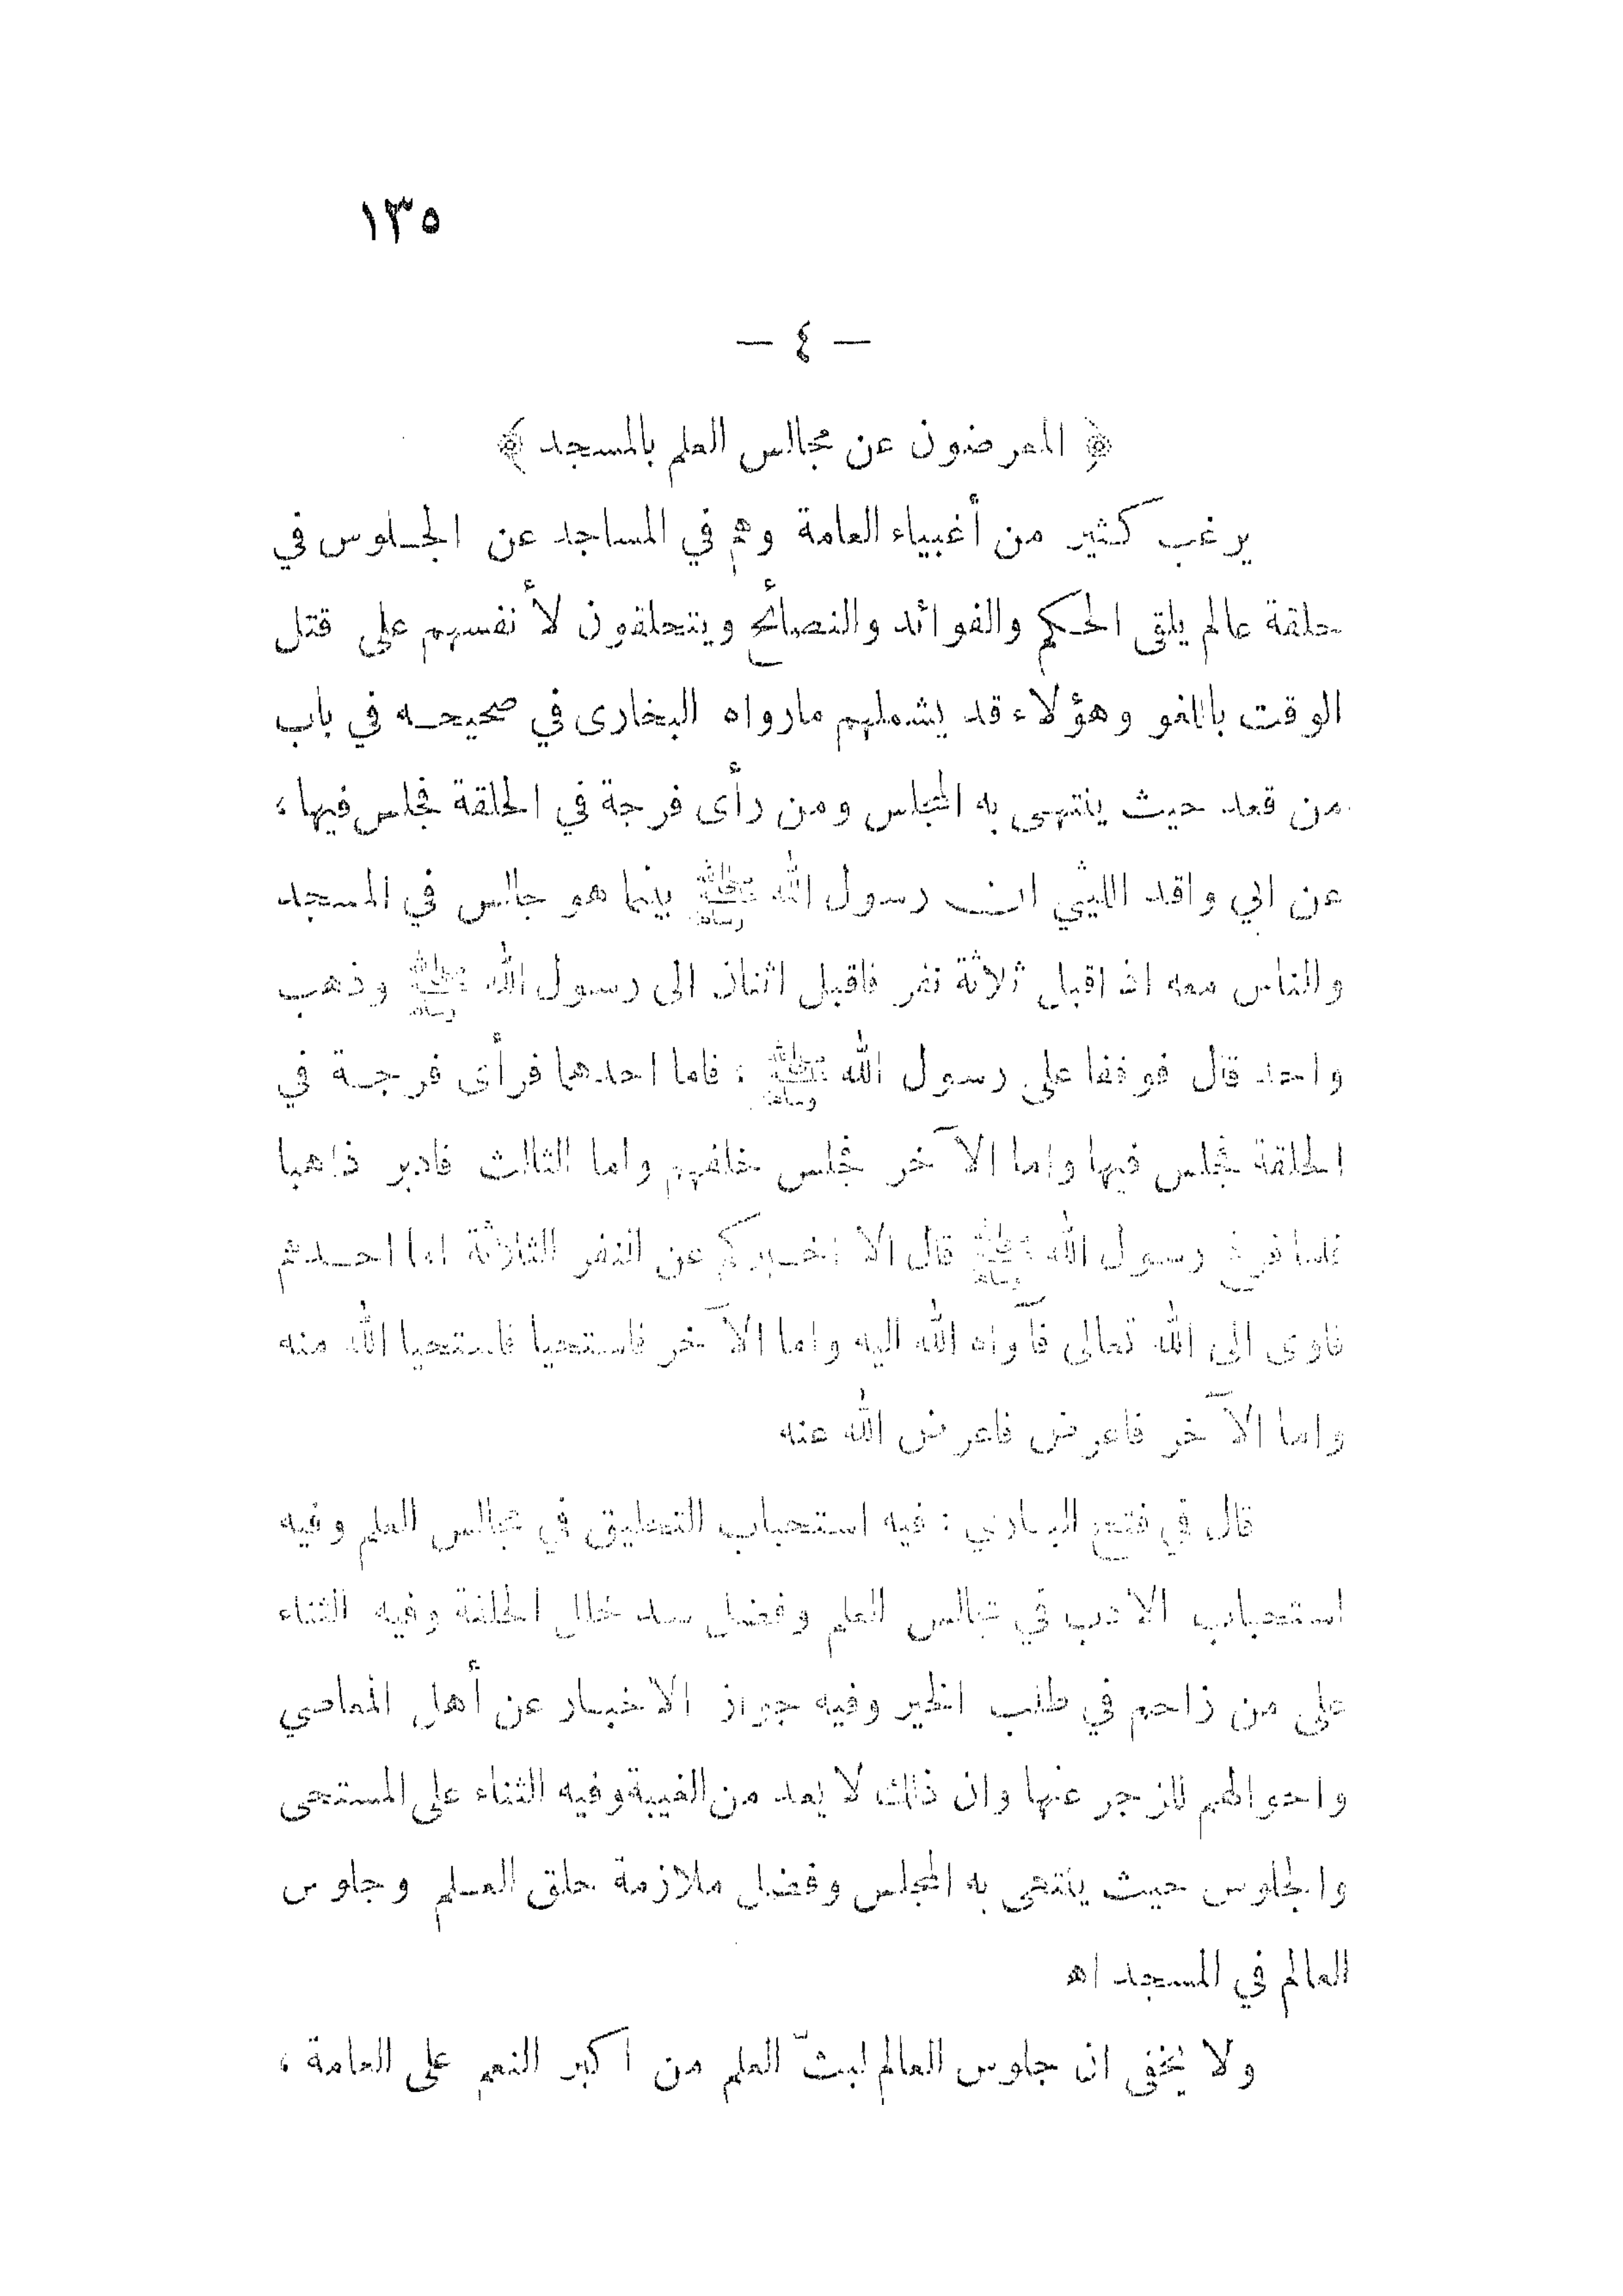 ١٣٥
— ٤ —
﴿ المعرضون عن مجالس العلم بالمسجد ﴾
يرغب كثير من أغبياء العامة وهم في المساجد عن الجلوس في
حلقة عالم يلقى الحكم والفوائد والنصائح ويتحلقون لأنفسهم على قتل
الوقت باللغو وهؤلاء قد يشملهم مارواه البخارى في صحيحه في باب
من قعد حيث ينتهى به المجلس ومن رأى فرجة في الحلقة فجلس فيها ،
عن ابي واقد الليثي ان رسول الله ﷺ بينما هو جالس في المسجد
والناس معه اذ اقبل ثلاثة نفر فاقبل اثنان الى رسول الله ﷺ وذهب
واحد قال فوقفا على رسول الله ﷺ : فاما احدهما فرأى فرجة في
الحلقة فجلس فيها واما الآخر فجلس خلفهم واما الثالث فادبر ذاهبا
فلما فرغ رسول الله ﷺ قال الا اخبركم عن النفر الثلاثة اما احدهم
فاوى الى الله تعالى فآواه الله اليه واما الآخر فاستحيا فاستحيا الله منه
واما الآخر فاعرض فاعرض الله عنه
قال في فتح الباري : فيه استحباب التحليق في مجالس العلم وفيه
استحباب الادب في مجالس العلم وفضل سد خلل الحلقة وفيه الثناء
على من زاحم في طلب الخير وفيه جواز الاخبار عن أهل المعاصي
واحوالهم للزجر عنها وان ذلك لا يعد من الغيبة وفيه الثناء على المستحى
والجلوس حيث ينتهى به المجلس وفضل ملازمة حلق العلم وجلوس
العالم في المسجد اه
ولا يخفى ان جلوس العالم لبثّ العلم من اكبر النعم على العامة ،